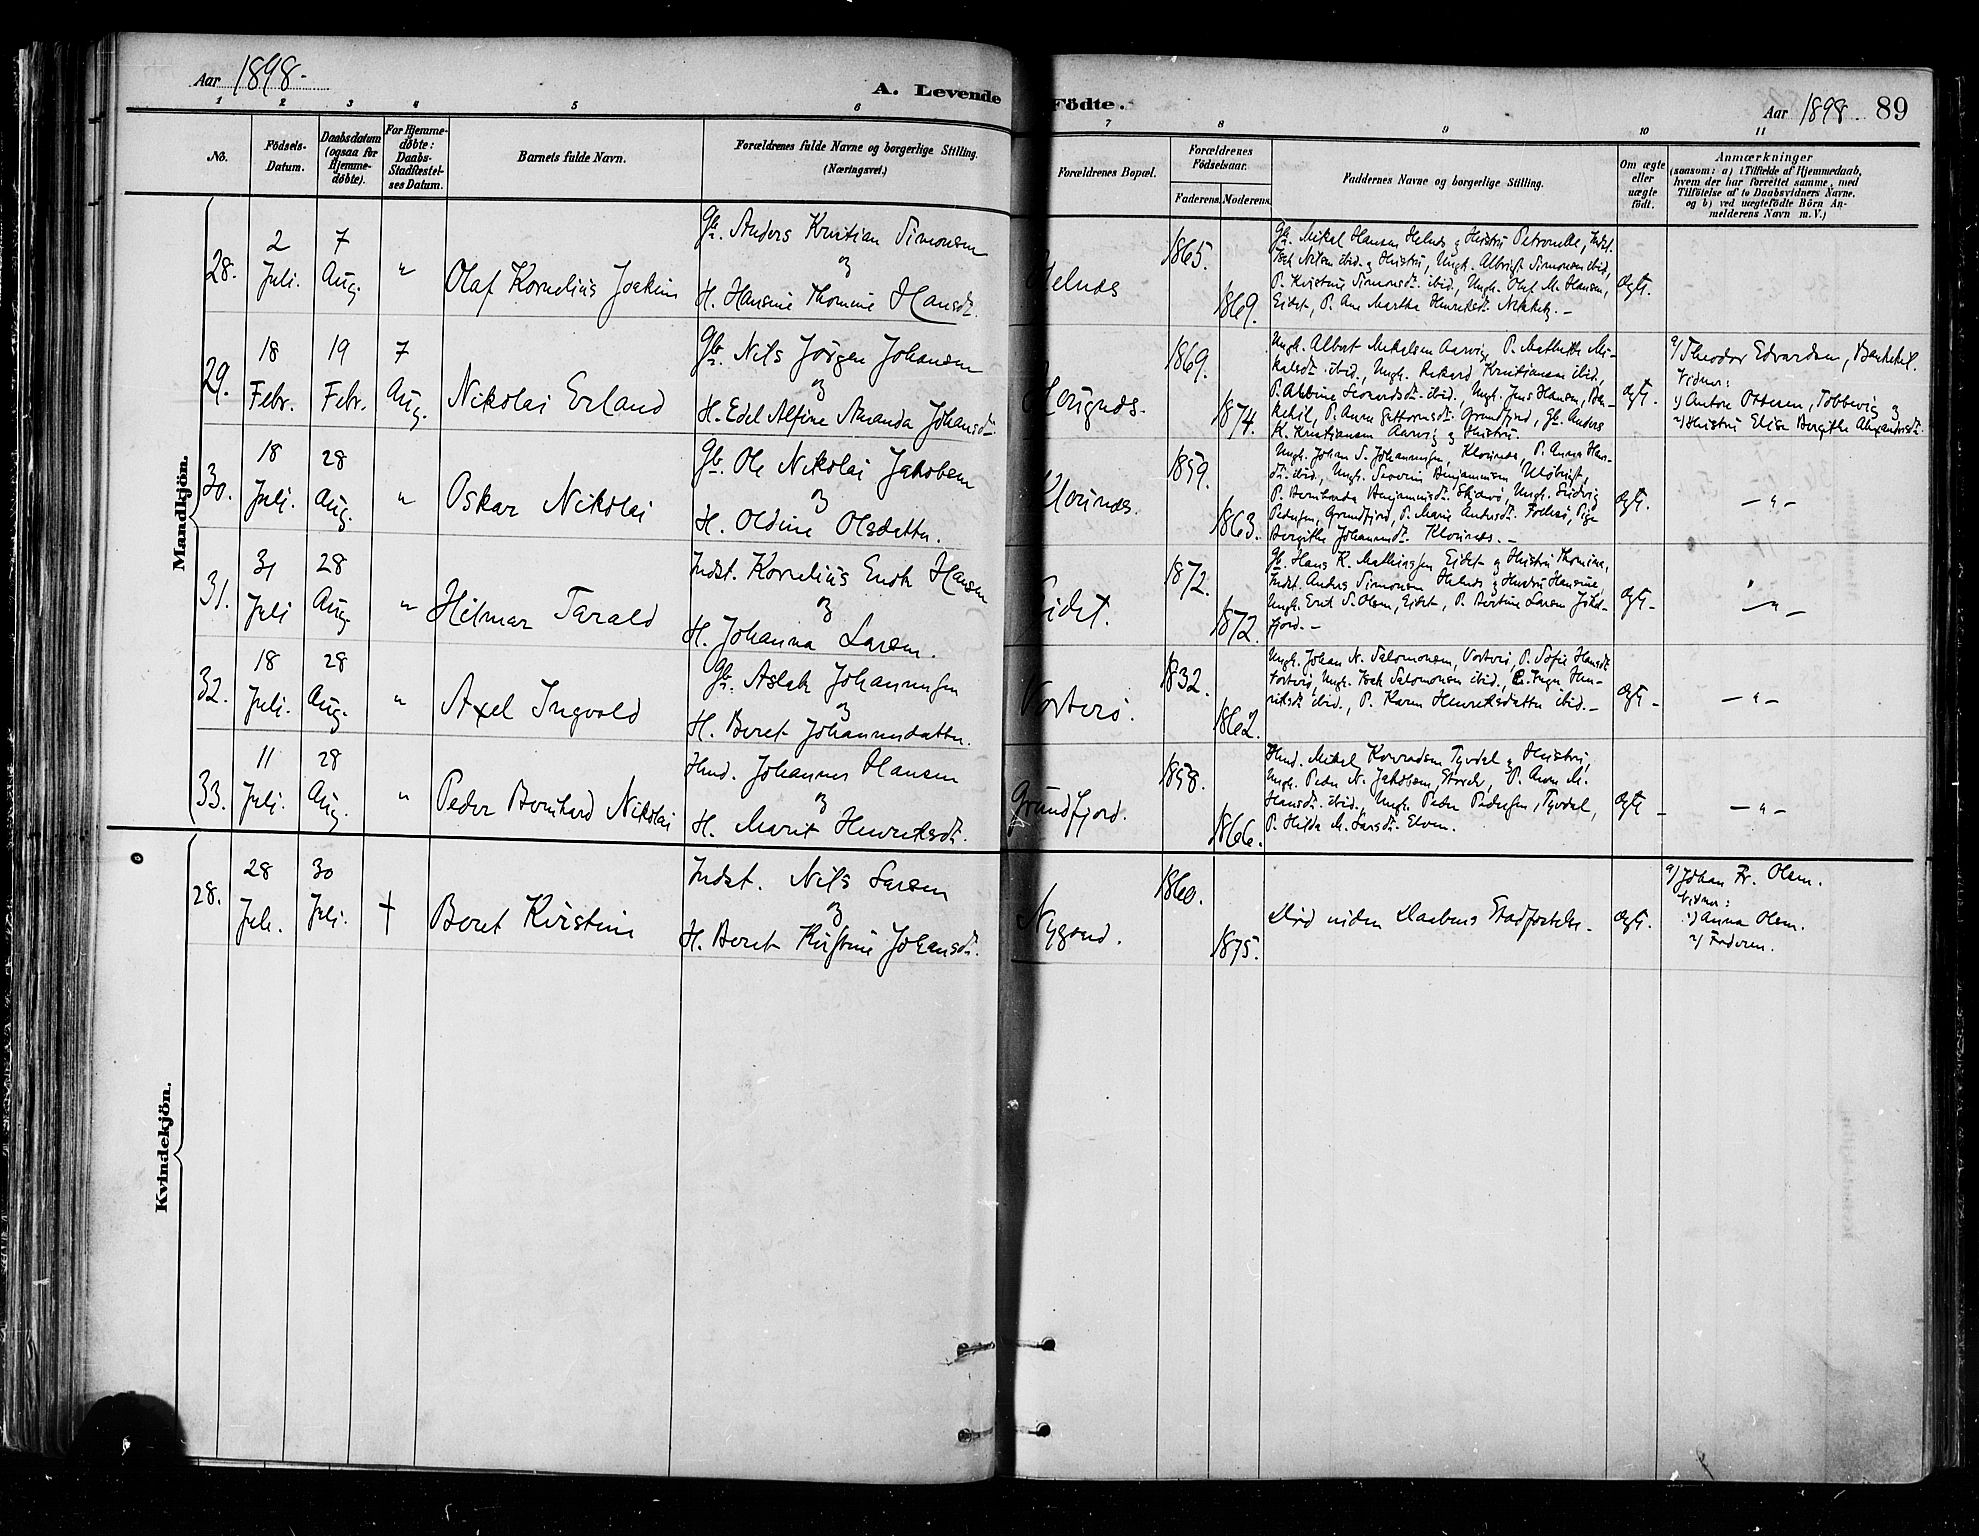 Aar 1898.
A. Levende Födte.
Aar 1898. 89
1 2 3 4 5 6 7 8 9 10 11
No.
Födsels-Datum.
Daabsdatum (ogsaa for Hjemme-døbte).
For Hjemme-døbte: Daabs-Stadfæstel-ses Datum.
Barnets fulde Navn.
Forældrenes fulde Navne og borgerlige Stilling.
(Næringsvei.)
Forældrenes Bopæl.
Forældrenes Födselsaar.
Faderens. Moderens.
Faddernes Navne og borgerlige Stilling.
Om ægte eller uægte födt.
Anmærkninger
(saasom: a) i Tilfælde af Hjemmedaab,
hvem der har forrettet samme, med
Tilföielse af to Daabsvidners Navne,
og b) ved uægtefödte Börn An-
melderens Navn m. V.)
Mandkjön.
28. 2 Juli. 7 Aug. " Olaf Kornelius Joakim
Gbr. Anders Kristian Simonsen
og
H. Hansine Thomine Hansdt.
Helnes 1865. 1869.
Gbr. Mikal Hansen Helnes og Hustru Petronelle, Indst.
Isak Nilsen ibid. og Hustru, Ungk. Albrigt Simonsen ibid.,
P. Kristine Simonsdt. ibid., Ungk. Olaf M. Hansen,
Eidet, P. Ane Martha Henriksdt.
ægte.
29. 18 Febr. 19 Febr. 7 Aug. Nikolai Erland
Gbr. Nils Jørgen Johansen
og
H. Edel Alfine Amanda Johansdt.
1869. 1874.
Ungk. Albert Mikelsen Aarvig, P. Mathilde Mi-
kalsdt. ibid., Ungk. Rikard Kristiansen ibid.,
P. Albine Leonardsdt. ibid., Ungk. Jens Hansen, Ben-
kehil, P. Anna Guttormsdt. Grundfjord, Gbr. Anders
K. Kristiansen Aarvig og Hustru.
ægte.
a) Theodor Edvardsen, Benkehil.
Vidner:
1) Anton Ottesen, Tobbevig og
2) Hustru Elise Bergithe Alexandersdt.
30. 18 Juli. 28 Aug. " Oskar Nikolai
Gbr. Ole Nikolai Jakobsen
og
H. Oldine Olsdatter.
Klovnes. 1859. 1863.
Ungk. Johan S. Johannesen, Klovnes, P. Anna Han-
dt. ibid., Ungk. Severin Benjaminsen
P. Bernharda Benjaminsdt. Skjærvø, Ungk. Ludvig
Pedersen, Grundfjord, P. Marie Andersdt. Pige
Bergithe Johannesdt. Klovnes. —
ægte. — " —
31. 31 Juli 28 Aug. " Hilmar Tarald
Indst. Kornelius Enok Hansen
og
H. Johanna Larsen.
Eidet. 1872. 1872.
Gbr. Hans K. Mathissen Eidet og Hustru Thomine,
Indst. Anders Simonsen Helnes og Hustru Hansine,
Ungk. Emil S. Olsen, Eidet, P. Bertine Larsen Jøkel-
fjord. —
ægte — " —
32. 18 Juli. 28 Aug. " Axel Ingvald
Gbr. Aslak Johannesen
og
H. Beret Johannesdatter.
Vorterø. 1832. 1862.
Ungk. Johan N. Salomonsen, Vorterø, P. Sofie Hansdt.
Vorterø, Ungk. Isak Salomonsen ibid., P. Inga Hen-
riksdt. ibid., P. Karen Henriksdatter ibid. —
ægte — " —
33. 11 Juli. 28 Aug. " Peder Bernhard Nikolai
Hmd. Johannes Hansen
og
H. Marit Henriksdt.
Grundfjord. 1858. 1866.
Hmd. Mikal Konradsen Tyvdal og Hustru,
Ungk. Peder N. Jakobsen, P. Anne M.
Hansdt. ibid., Ungk. Peder Pedersen, Tyvdal,
P. Hilda M. Larsdt. Elven.
ægte — " —
Kvindekjön.
28. 28 Juli. 30 Juli. † Beret Kirstine
Indst. Nils Larsen
og
H. Beret Kirstine Johansdt.
Nygaard. 1860. 1875.
Død uden Daabens Stadfæstelse.
ægte.
a) Johan Fr. Olsen.
Vidner:
1) Anna Olsen.
2) Faderen.